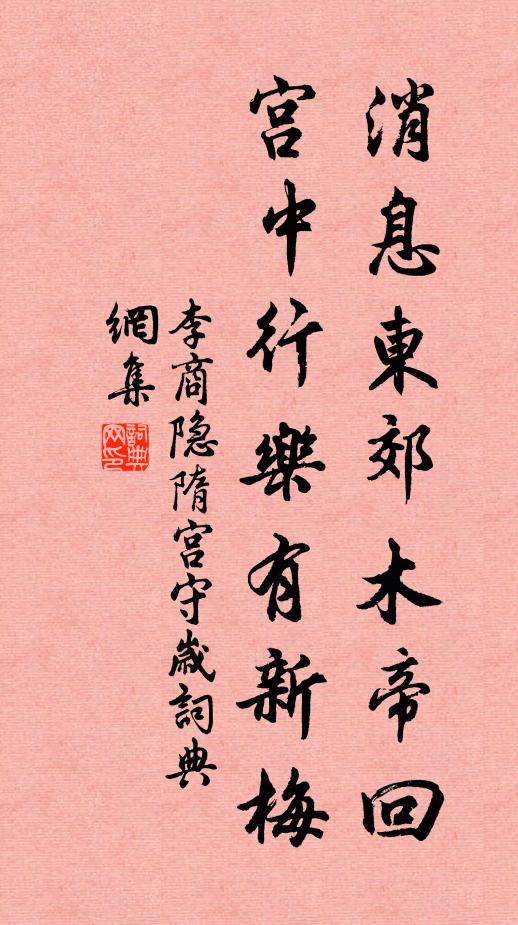 消息東郊木帝回
宫中行樂有新梅
李商隐隋宫守歲詞典
網集
詞典網印